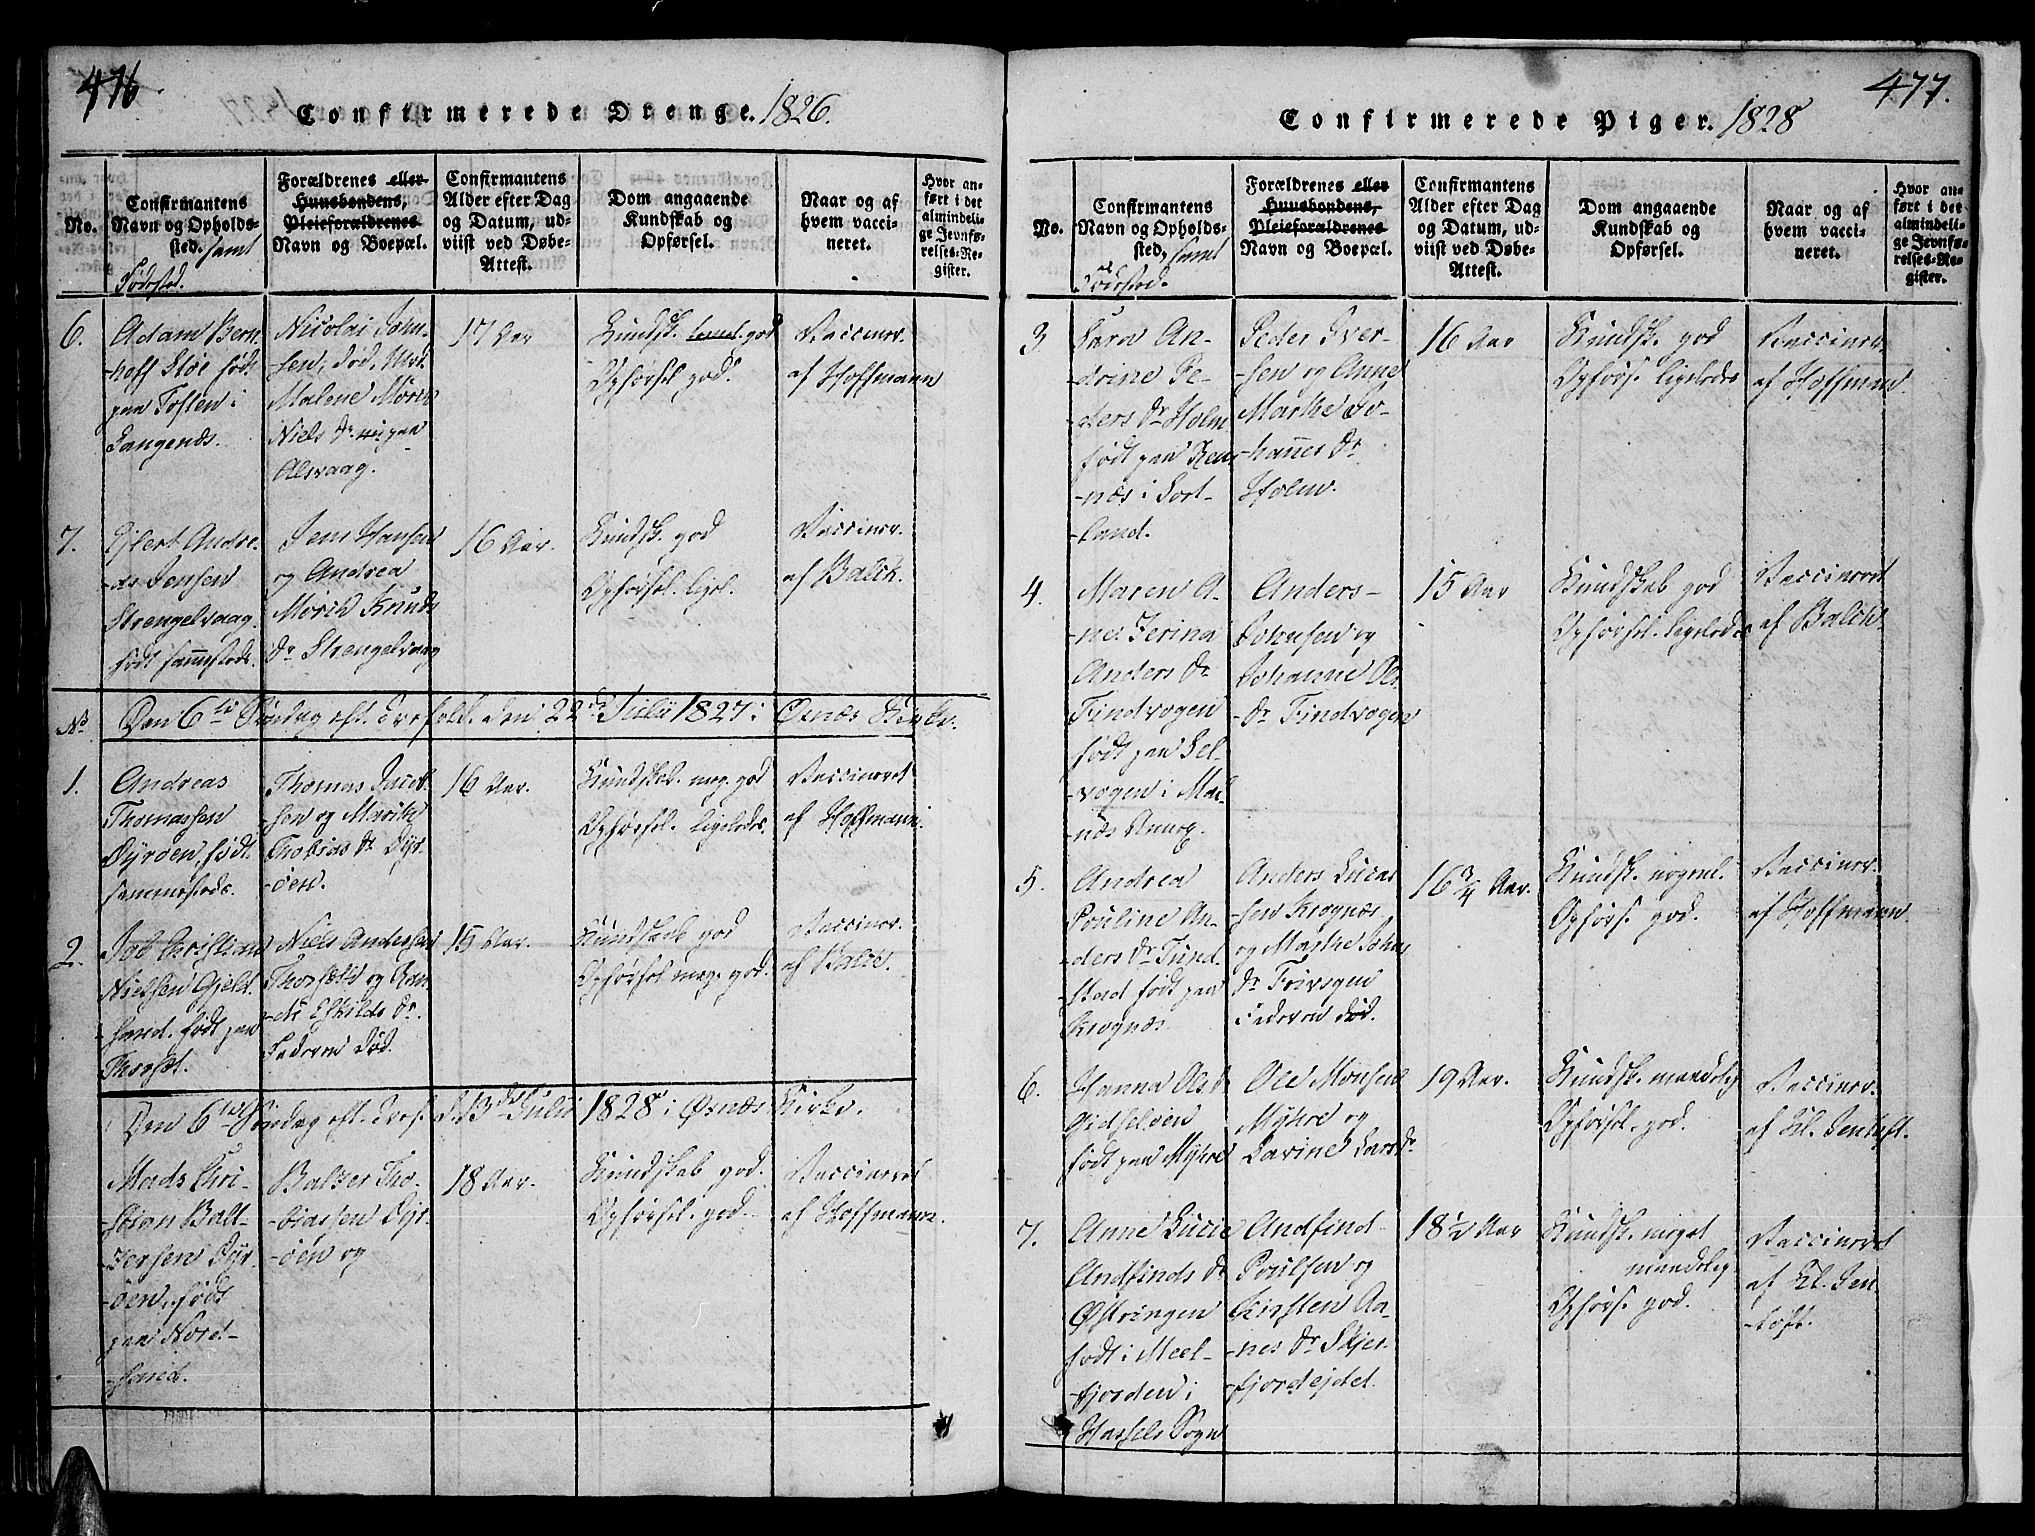 476.
Confirmerede Drenge. 1826.
No.
Confirmantens
Navn og Opholds-
sted. samt
Fødested.
Forældrenes eller
Huusbondens,
Pleieforældrenes
Navn og Boepæl.
Confirmantens
Alder efter Dag
og Datum, ud-
viist ved Døbe-
Attest.
Dom angaaende
Kundskab og
Opførsel.
Naar og af
hvem vacci-
neret.
Hvor an-
ført i det
almindeli-
ge Jevnfø-
relses-Re-
gister.
6.
Adam Bern-
-hoff Støe født
paa Toften i
Langenæs.
Nicolai John-
sen, død, Mod.
Malene Marie
Niels Dr. paa
Alsvaag.
17 Aar
Kundsk. god
Opførsel god.
Vacciner.
af Hoffmann
7.
Ejlert Andre-
-as Jensen
Strengelvaag.
født sammesteds.
Jens Hansen
og Andrea
Maria Knuds
Dr. Strengelvaag
16 Aar.
Kundsk. god
Opførsel ligel.
Vacciner.
af Balck.
No
Den 6te Søndag eft. Trefold. den 22de Julii 1827 i Øsnæs Kirke.
1.
Andreas
Thomassen
Dyrøen, født
sammesteds.
Thomas Jacob-
sen og Marith
Thobias Dr. Dyr-
-øen.
16 Aar.
Kundskb. meg. god
Opførsel. ligeledes.
Vaccineret
af Hoffmann.
2.
Job Christian
Nielsen Gjeld-
-sand. født paa
Thorsæt.
Niels Andersen
Thorsæth og
Eskilds Dr.
Faderen død.
15 Aar.
Kundskab god
Opførsel meg. god.
Vacciner.
af Balck.
Den 6te Søndag eft. Tref. d. 13de Julii 1828 i Øsnæs Kirke.
Mads Chri-
-stian Balt-
-zersen Dyr-
-øen, født
paa Nord-
-sand.
Baltzer Tho-
-biassen Dyr-
-øen og
18 Aar.
Kundskab god.
Opførsel. god.
Vaccineret
af Hoffmann.
477.
Confirmerede Piger. 1828
No.
Confirmantens
Navn og Opholds-
sted, samt
Fødested.
Forældrenes eller
Huusbondens,
Pleieforældrenes
Navn og Boepæl.
Confirmantens
Alder efter Dag
og Datum, ud-
viist ved Døbe-
Attest.
Dom angaaende
Kundskab og
Opførsel.
Naar og af
hvem vacci-
neret.
Hvor an-
ført i det
almindeli-
ge Jevnfø-
relses-Re-
gister.
3.
Sara An-
-drine Pe-
-ders Dr. Holm
født paa
-næs i Sort-
-land.
Peder Iver-
-sen og Anne
Marthe Jo-
-hannes Dr.
Holm.
16 Aar
Kundsk. god
Opførs. ligeledes
Vacciner.
af Hoffman.
4.
Maren A-
-ne Serina
Anders Dr.
Findvogen
født paa Sel-
-vogen i Mal-
-næs Annex.
Anders-
Johnsen og
Johanne Ols
Dr. Findvogen
15 Aar
Kundskab god
Opførsel. ligeledes
Vaccineret
af Balck.
5.
Andrea
Pouline An-
-ders Dr. Tund-
-stad født paa
Krognæs.
Anders Lucas-
-sen Krognæs
og Marthe Johns
Dr.
Faderen død.
16 3/4 Aar.
Kundsk. nogenl.
Opførs. god.
Vacciner.
af Hoffmann.
6.
Hanna Ols Dr
Gidseløen
født paa Myhre
Ole Monsen
Myhre og
Lavine Lars Dr.
19 Aar.
Kundsk. maadelig
Opførsel. god.
Vacciner.
af Kl. Jentoft.
7.
Anne Lucie
Andfinds Dr
Østringen
født i Meel-
-fjorden i
Hassels Sogn
Andfind
Poulsen og
Kirsten An-
-nes Dr. Skjer-
-fjordejdet.
18 1/2 Aar
Kundsk. meget
maadelig
Opførs. god.
Vaccineret
af Kl. Jen
-toft.